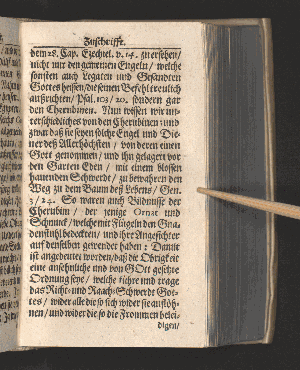 Zuschrifft.
dem 28. Cap. Ezechiel. v. 14. zu ersehen/
nicht nur den gemeinen Engeln/ welche
sonsten auch Legaten und Gesandten
Gottes heissen/ die seinem Befehl treulich
außrichten/ Psal. 103/ 20. sondern gar
den Cherubinen. Nun wissen wir un-
terschiedliches von den Cherubinen und
zwar daß sie seyen solche Engel und Die-
ner deß Allerhöchsten/ von deren einen
Gott genommen/ und ihn gelagert vor
den Garten Eden/ mit einem blossen
hauenden Schwerdt/ zu bewahren den
Weg zu dem Baum deß Lebens/ Gen.
3/ 24. So waren auch Bildnisse der
Cherubim/ der jenige Ornat und
Schmuck/ welche mit Flügeln den Gna-
denstuhl bedeckten/ und ihre Angesichter
auf denselben gewendet haben: Damit
ist angedeutet worden/ daß die Obrigkeit
eine ansehnliche und von GOtt gesetzte
Ordnung seye/ welche führe und trage
das Richt- und Raach-Schwerdt Got-
tes/ wider alle die so sich wider sie auflöh-
nen/ und wider die so die Frommen belei-
digen/